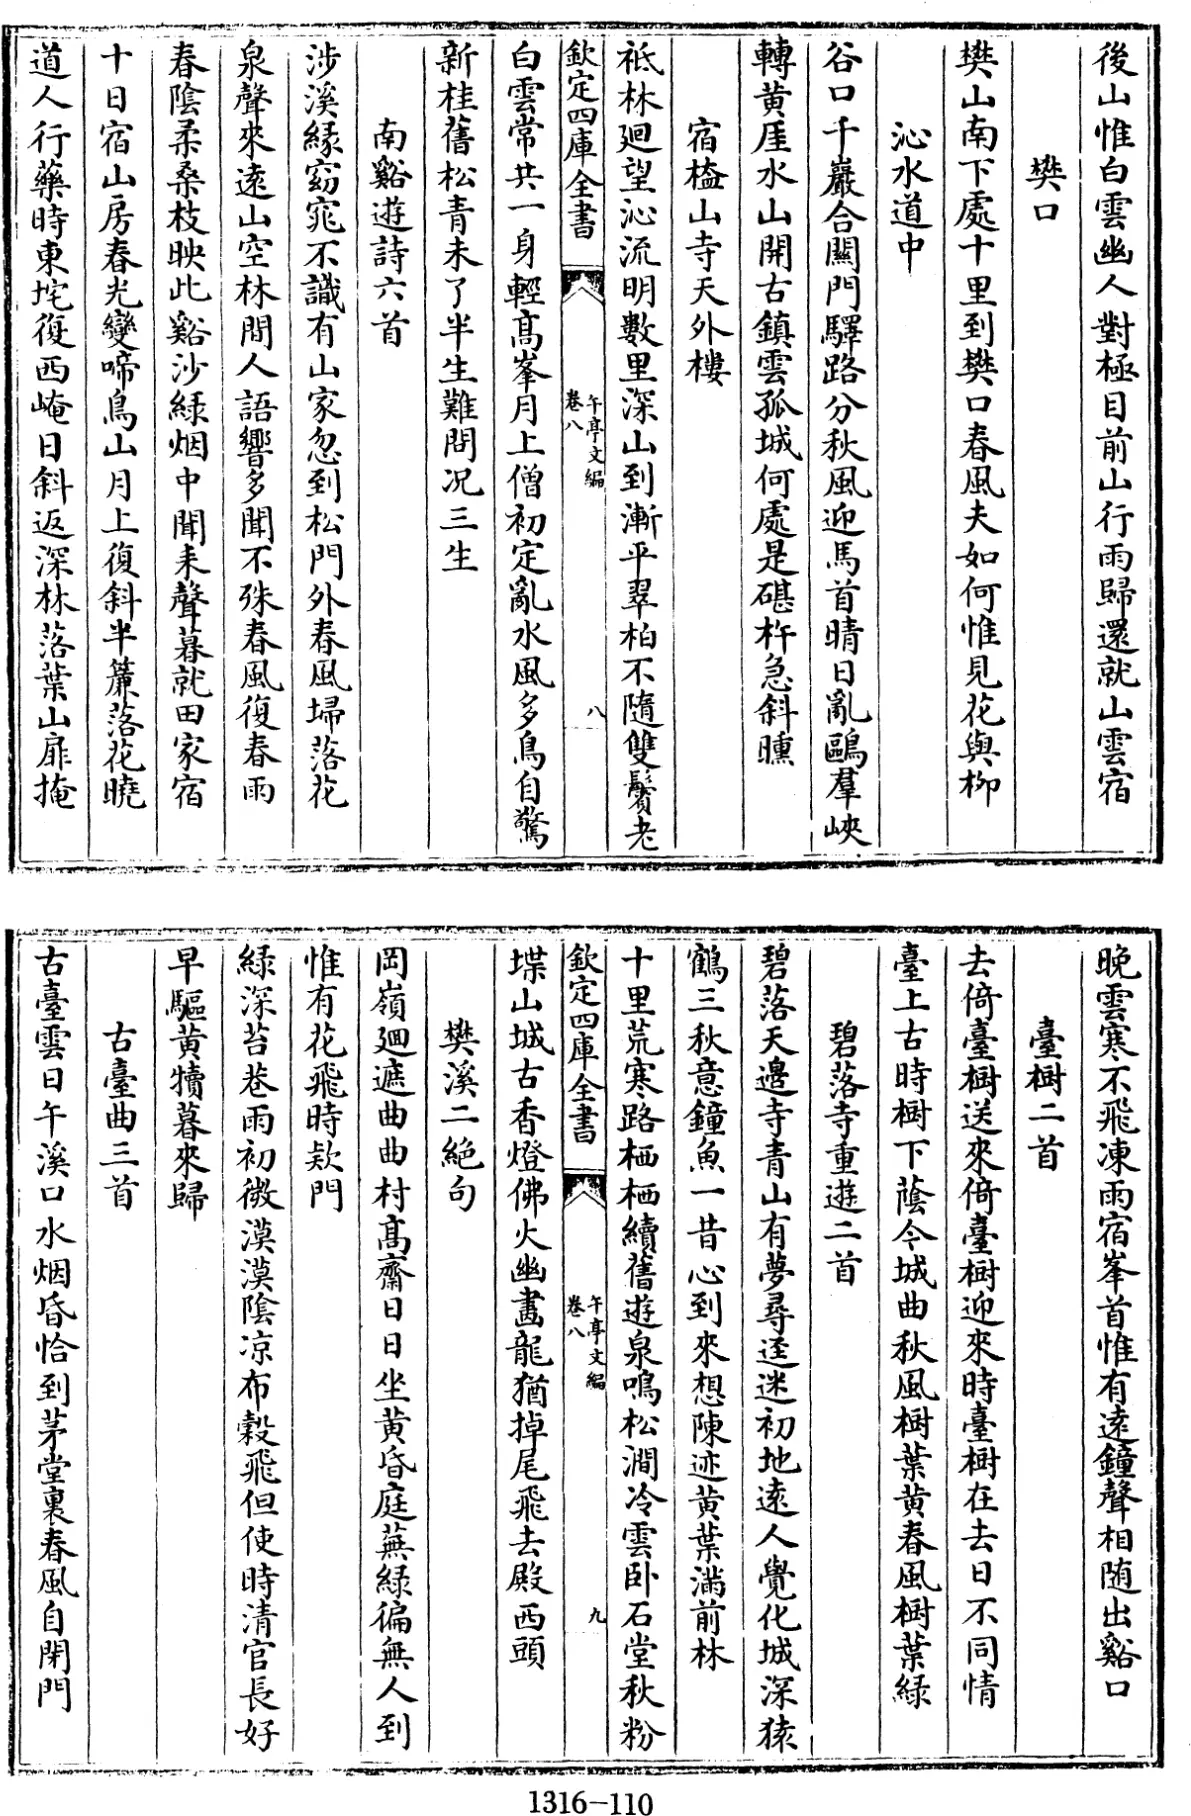 後山惟白雲幽人對極目前山行雨歸還就山雲宿
樊口
樊山南下處十里到樊口春風夫如何惟見花與柳
沁水道中
谷口千巖合關門驛路分秋風迎馬首晴日亂鷗羣峽
轉黄厓水山開古鎮雲孤城何處是碪杵急斜曛
宿榼山寺天外樓
祗林廻望沁流明數里深山到漸平翠柏不隨雙鬢老
欽定四庫全書
午亭文編
卷八
八
白雲常共一身輕高峯月上僧初定亂水風多鳥自驚
新桂舊松青未了半生難問况三生
南谿遊詩六首
涉溪緣窈窕不識有山家忽到松門外春風埽落花
泉聲來遠山空林間人語響多聞不殊春風復春雨
春陰柔桑枝映此谿沙緑烟中聞耒聲暮就田家宿
十日宿山房春光變啼鳥山月上復斜半簾落花曉
道人行藥時東垞復西崦日斜返深林落葉山扉掩
晚雲寒不飛凍雨宿峯首惟有遠鐘聲相随出谿口
臺樹二首
去倚臺樹送來倚臺樹迎來時臺樹在去日不同情
臺上古時樹下蔭今城曲秋風樹葉黄春風樹葉緑
碧落寺重遊二首
碧落天邊寺青山有夢尋逕迷初地遠人覺化城深猿
鶴三秋意鐘魚一昔心到來想陳迹黄葉滿前林
十里荒寒路栖栖續舊遊泉鳴松澗冷雲卧石堂秋粉
欽定四庫全書
午亭文編
卷八
九
堞山城古香燈佛火幽畫龍猶掉尾飛去殿西頭
樊溪二絶句
岡嶺廻遮曲曲村髙齋日日坐黄昏庭蕪緑徧無人到
惟有花飛時欵門
緑深苔巷雨初微漠漠陰凉布穀飛但使時清官長好
早驅黄犢暮來歸
古臺曲三首
古臺雲日午溪口水烟昏恰到茅堂裏春風自閉門
1316-110